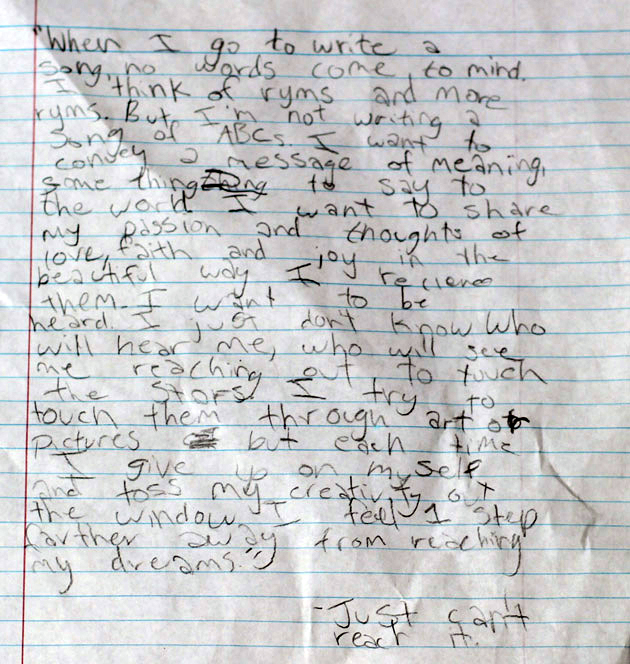 "When I go to write a
song, no words come to mind.
I think of ryms and more
ryms. But I'm not writing a
song of ABCs. I want to
convey a message of meaning,
some thing to say to
the world I want to share
my passion and thoughts of
love, faith and joy in the
beautiful way I recieve
them. I want to be
heard. I just don't know who
will hear me, who will see
me reaching out to touch
the stars. I try to
touch them through art or
pictures but each time
I give up on myself
and toss my creativity out
the window, I feel 1 step
farther away from reaching
my dreams."
- Just can't
reach it.